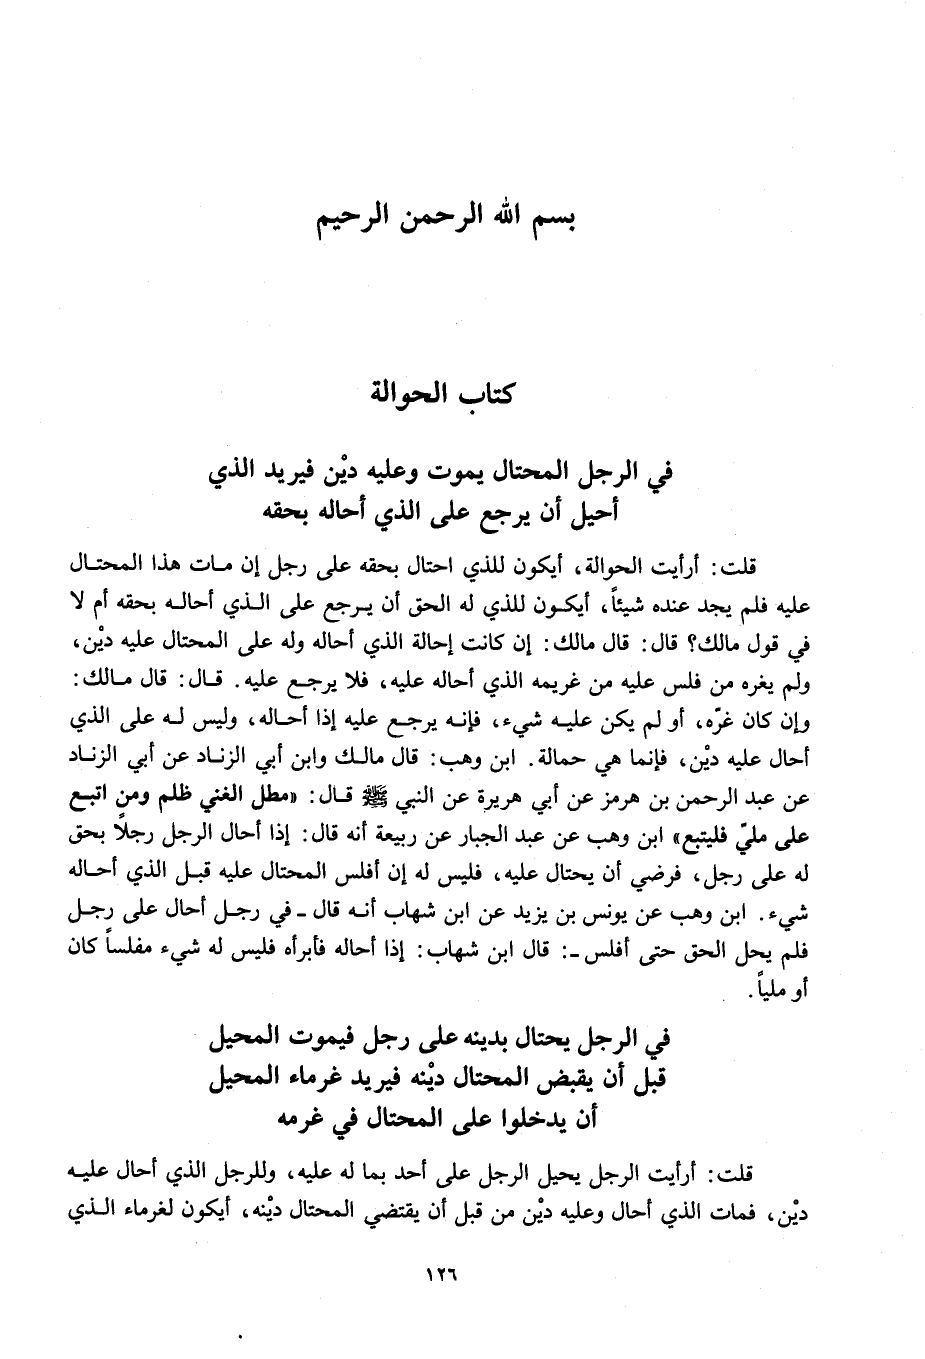 بسم الله الرحمن الرحيم
كتاب الحوالة
في الرجل المحتال يموت وعليه ديْن فيريد الذي
أحيل أن يرجع على الذي أحاله بحقه
قلت: أرأيت الحوالة، أيكون للذي احتال بحقه على رجل إن مات هذا المحتال
عليه فلم يجد عنده شيئاً، أيكون للذي له الحق أن يرجع على الذي أحاله بحقه أم لا
في قول مالك؟ قال: قال مالك: إن كانت إحالة الذي أحاله وله على المحتال عليه ديْن،
ولم يغره من فلس عليه من غريمه الذي أحاله عليه، فلا يرجع عليه. قال: قال مالك:
وإن كان غرّه، أو لم يكن عليه شيء، فإنه يرجع عليه إذا أحاله، وليس له على الذي
أحال عليه ديْن، فإنما هي حمالة. ابن وهب: قال مالك وابن أبي الزناد عن أبي الزناد
عن عبد الرحمن بن هرمز عن أبي هريرة عن النبي ﷺ قال: «مطل الغني ظلم ومن اتبع
على مليّ فليتبع» ابن وهب عن عبد الجبار عن ربيعة أنه قال: إذا أحال الرجل رجلاً بحق
له على رجل، فرضي أن يحتال عليه، فليس له إن أفلس المحتال عليه قبل الذي أحاله
شيء. ابن وهب عن يونس بن يزيد عن ابن شهاب أنه قال ـ في رجل أحال على رجل
فلم يحل الحق حتى أفلس ـ: قال ابن شهاب: إذا أحاله فأبرأه فليس له شيء مفلساً كان
أو ملياً.
في الرجل يحتال بدينه على رجل فيموت المحيل
قبل أن يقبض المحتال ديْنه فيريد غرماء المحيل
أن يدخلوا على المحتال في غرمه
قلت: أرأيت الرجل يحيل الرجل على أحد بما له عليه، وللرجل الذي أحال عليه
ديْن، فمات الذي أحال وعليه ديْن من قبل أن يقتضي المحتال ديْنه، أيكون لغرماء الذي
١٢٦